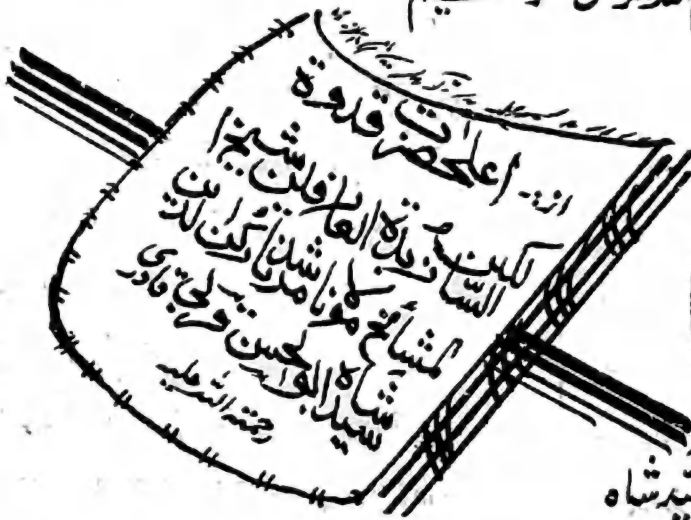 از:- اعلحضرت قدوة
السالکین زبدة العارفین شیخ ا
لمشائخ مولانا مرشدنا رکن الدین
سید شاہ ابوالحسن قربی قادری
رحمتہ اللہ علیہ
شاہ